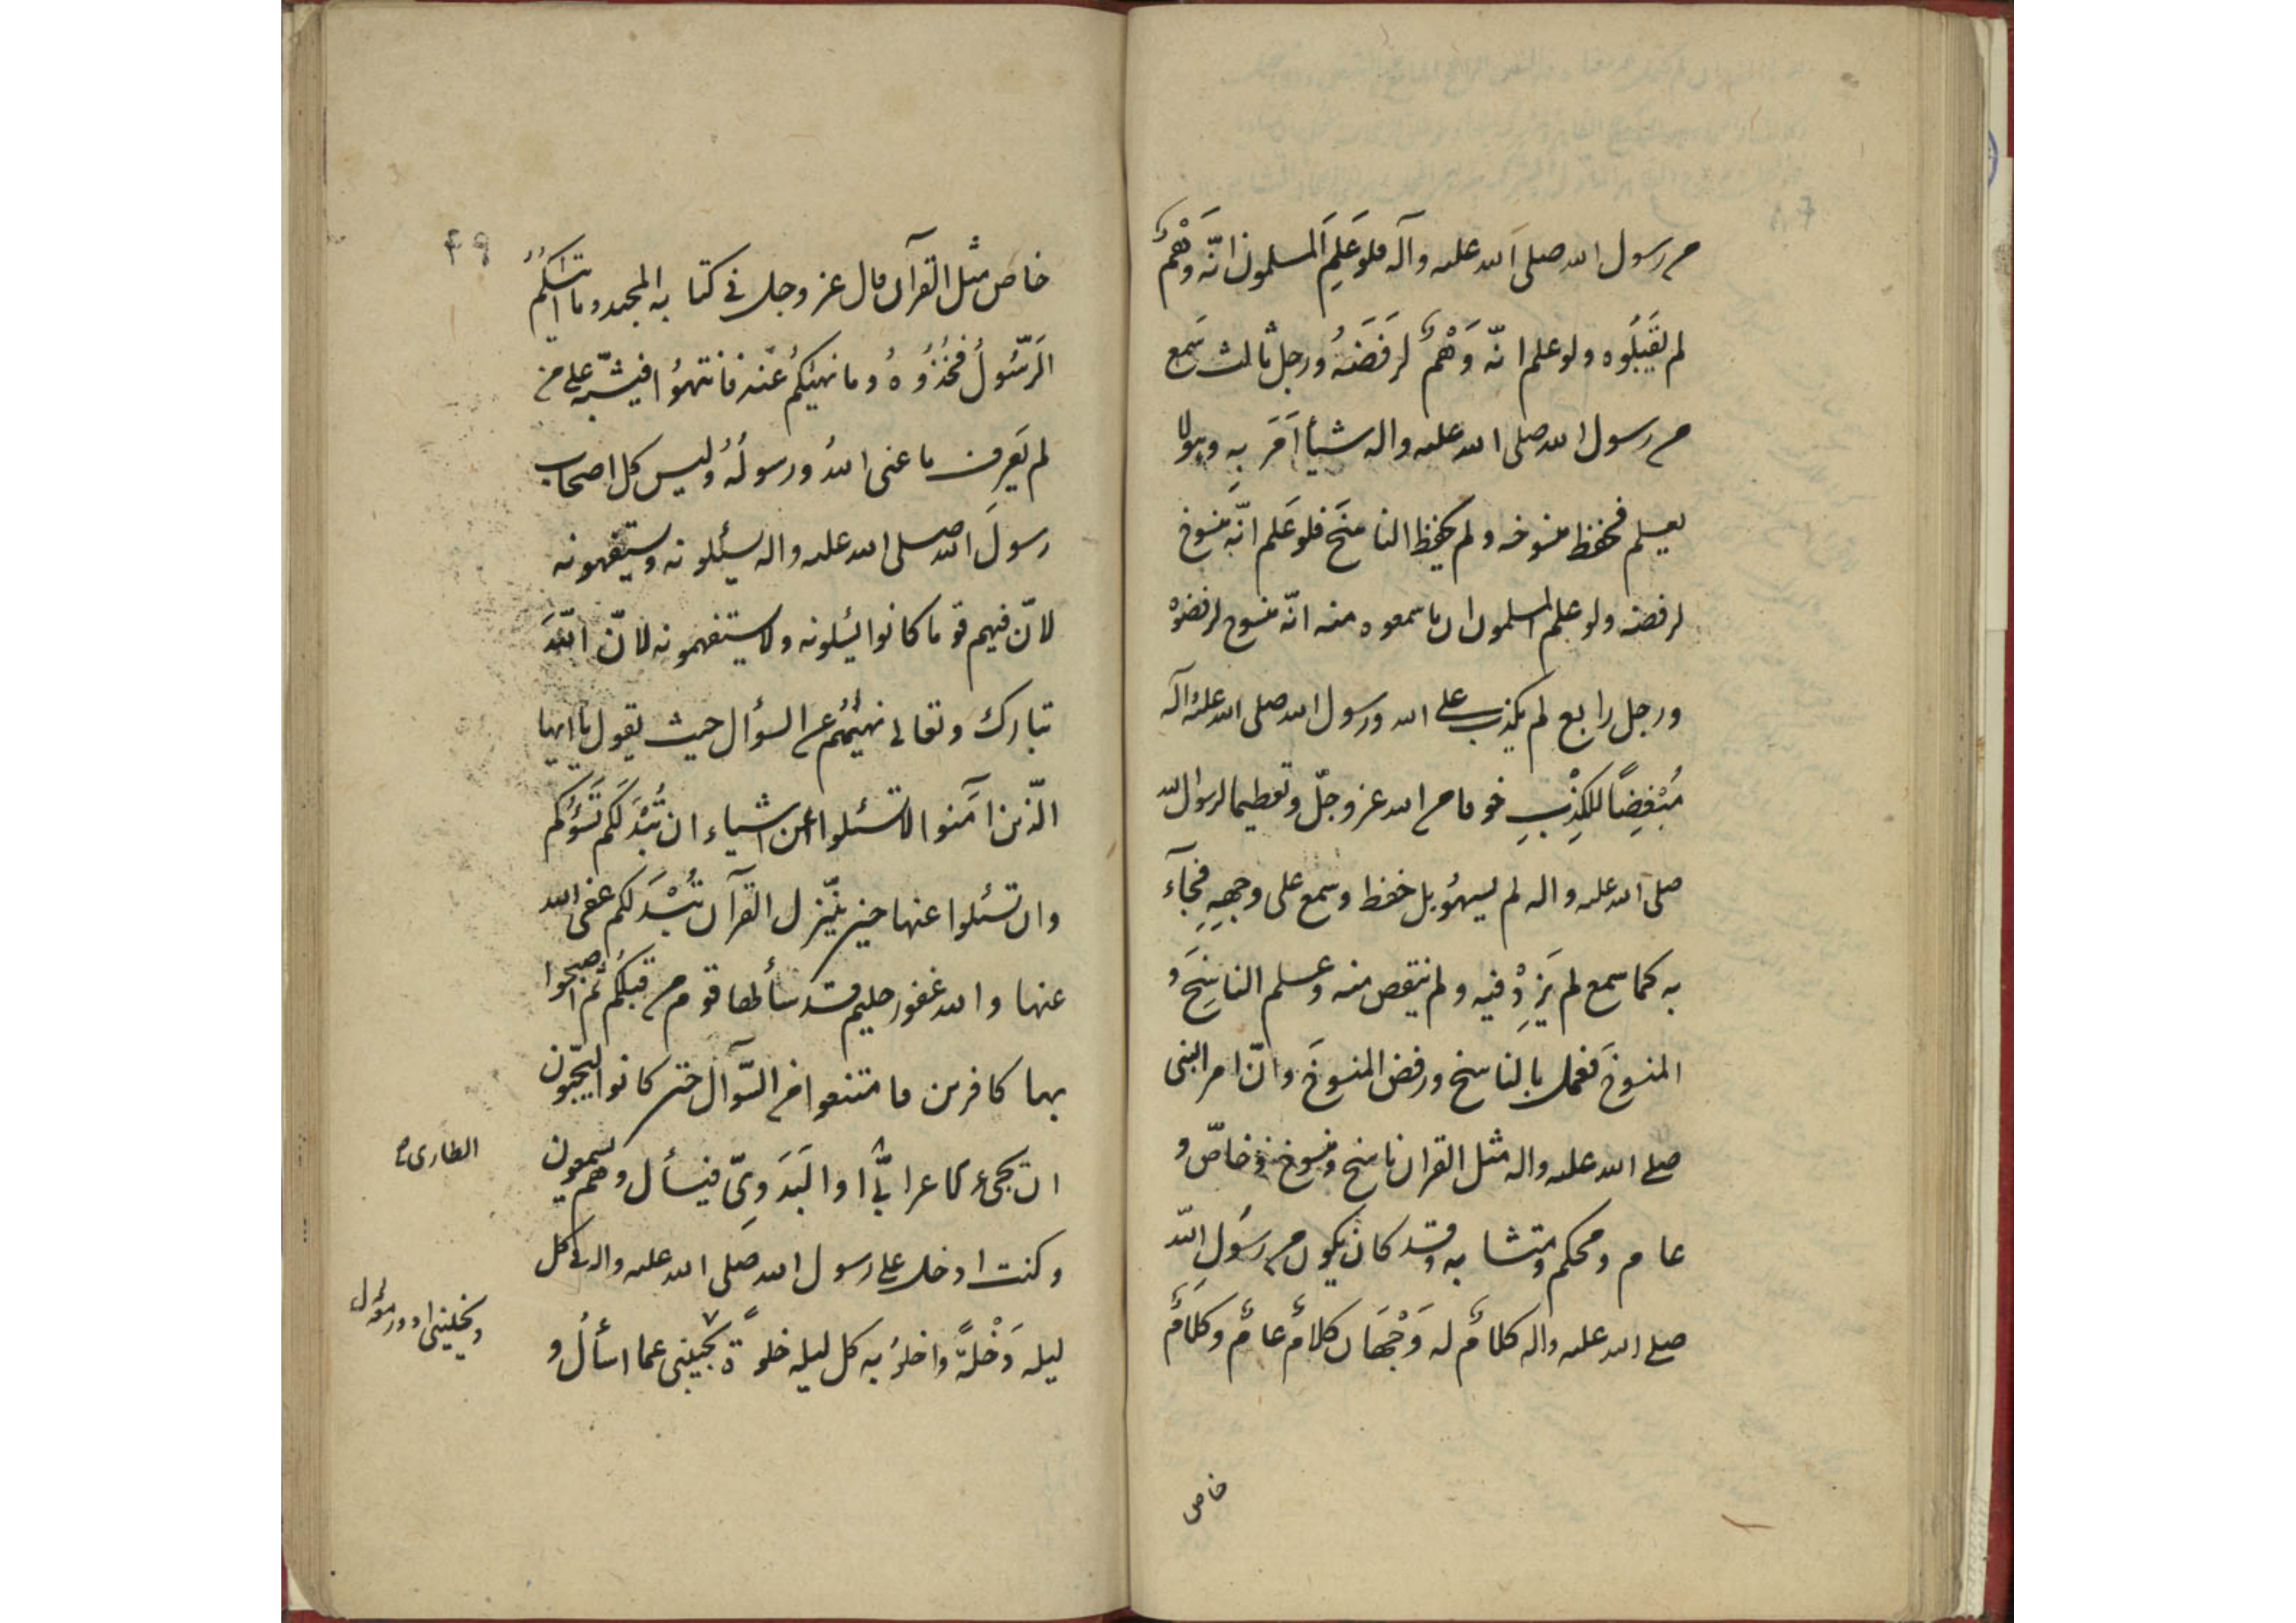 من رسول الله صلى الله عليه وآله فلو عَلِمَ المسلمون انّه وَهْمٌ
لم يقبَلُوه ولو علم انّه وَهْمٌ لرفَضَهُ ورجل ثالث سَمِع
من رسول الله صلى الله عليه واله شيأ اَمَرَ بِه وهو لا
يعلم فحفظ منسوخه ولم يحفظ الناسِخَ فلو عَلم انّه منسوخ
لرفضه ولو علم المسلمون ان ما سمعوه منه انّه منسوخ لرفضوْه
ورجل رابع لم يكذب على الله ورسول الله صلى الله عليه وآله
مُبْغِضًا للكِذْبِ خوفا من الله عز وجلّ وتعظيما لرسول الله
صلى الله عليه واله لم يسهُ بل حفظ وسمع على وجهِهِ فجآء
به كما سمع لم يَزِدْ فيه ولم ينقص منه وعلم الناسِخَ و
المنسوخَ فعمل بالناسخ ورفض المنسوخَ وانّ امر النبى
صلى الله عليه واله مثل القران ناسخ ومنسوخ وخاصّ و
عام ومحكم ومتشابه وقد كان يكون من رسُولِ اللّه
صلى الله عليه واله كلامٌ له وَجْهَان كلامٌ عامٌ وكلَامٌ
خاص
٤٩
خاص مثل القرآن قال عز وجل فى كتابه المجيد وما اتٰىكُمُ
الرَّسُولُ فَخُذُوُهُ وما نهيٰكُمْ عَنْه فانتهوُا فيشبّه على من
لم يَعرِف ما عنى اللهُ ورسولُهُ وليس كل اصحاب
رسولَ الله صلى الله عليه واله يسئلونه ويستفهمونه
لانّ فيهم قوما كانوا يسئلونه ولا يستفهمونه لانّ اللّهَ
تبارك وتعالى نهيٰهُم عن السؤال حيث يقول يا ايها
الّذين آمَنوا لا تسئلوا عن اشياء ان تُبْدَ لَكم تَسُؤكم
وان تسئلوا عنها حين يُنَزّل القرآن تُبْدَ لكم عفى الله
عنها والله غفور حليم قد سألها قوم من قبلكُم ثُم اصبحوا
بها كافرين فامتنعوا من السّؤال حتى كانوا ليحبّون
ان يجىء الاعرابىّ او البَدَوِىّ فيسأل وهم يسمعون
وكنت ادخل على رسول الله صَلى الله عليه واله فى كل
ليله دَخْلةً واخلوُ به كل ليله خلوةً يجيبنى عما اسألُ و
الطارى